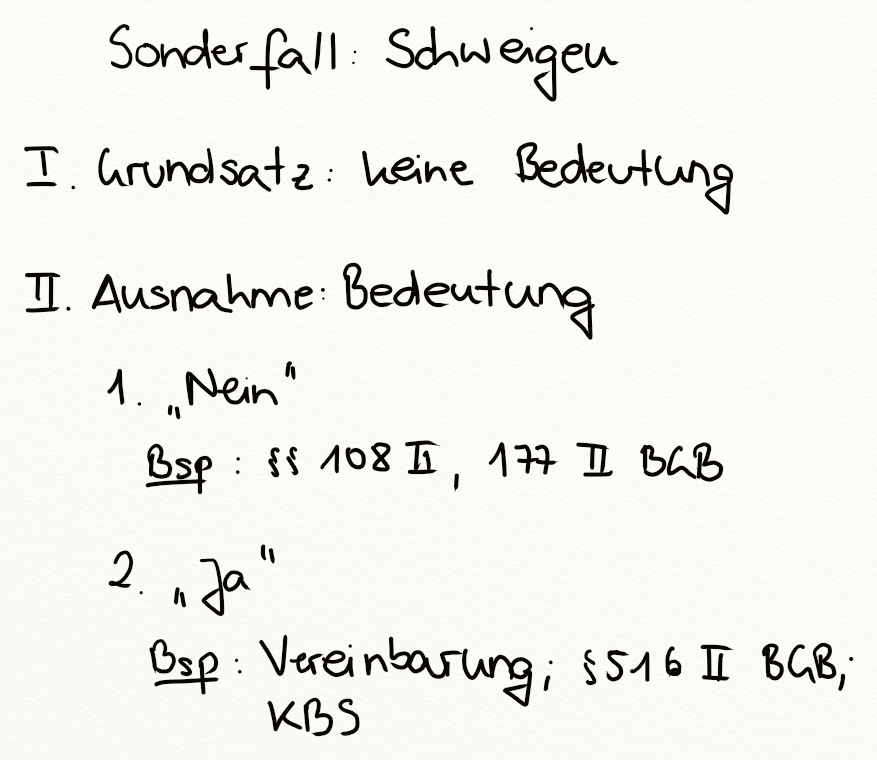 Sonderfall: Schweigen
I. Grundsatz: keine Bedeutung
II. Ausnahme: Bedeutung
1. „Nein“
Bsp: §§ 108 II, 177 II BGB
2. „Ja“
Bsp: Vereinbarung; § 516 II BGB;
KBS